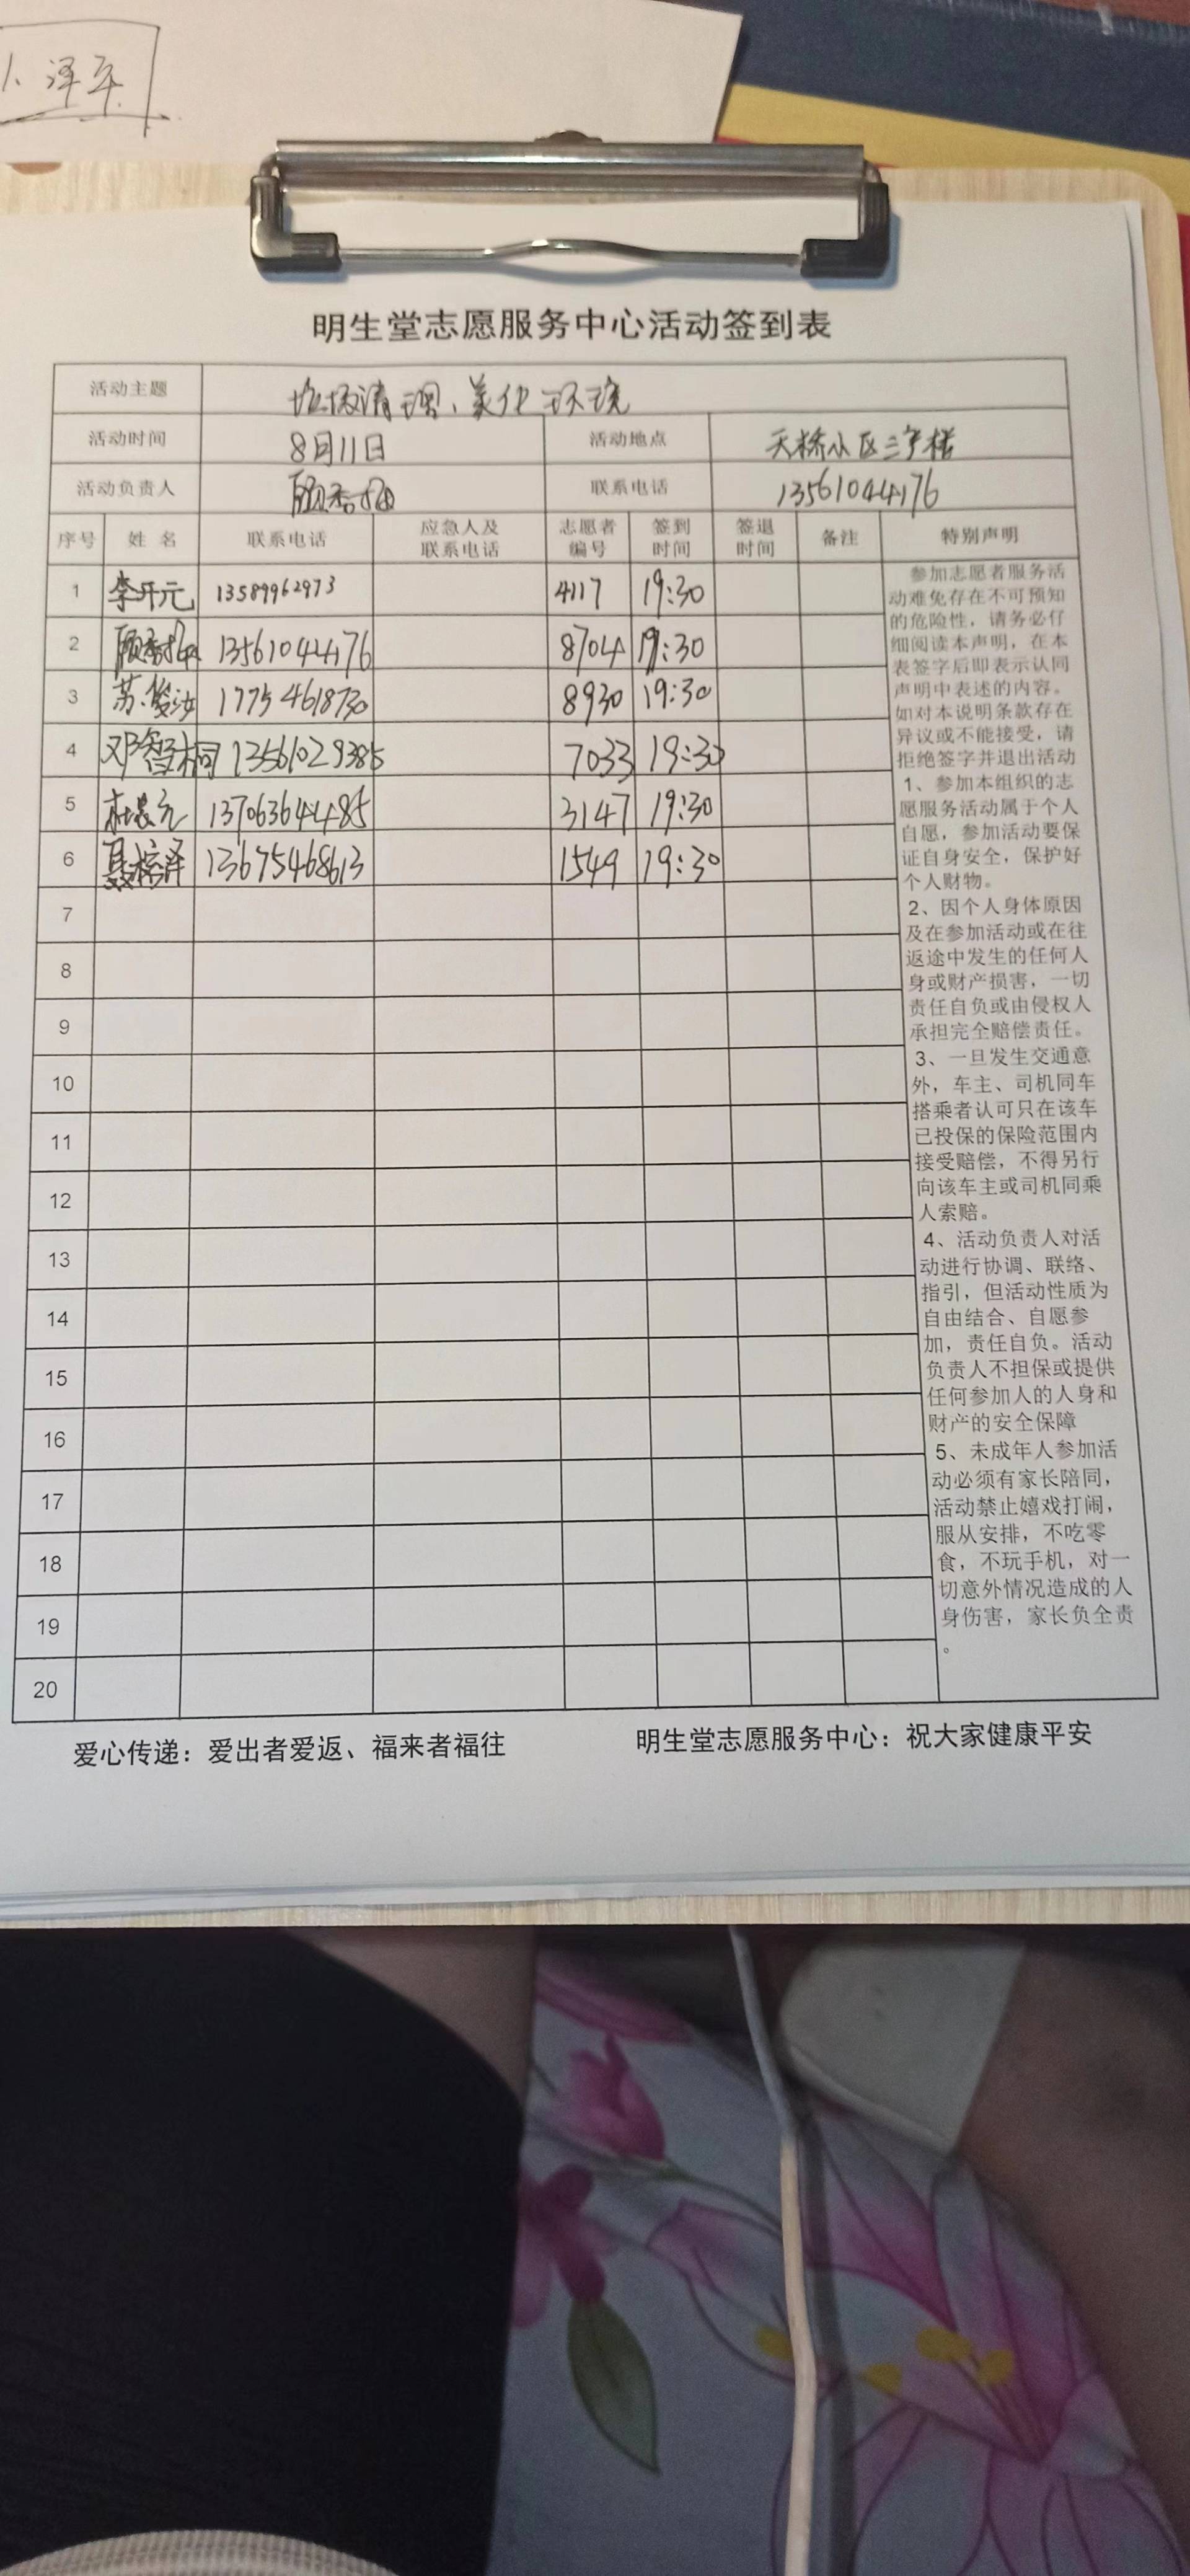 泽
明生堂志愿服务中心活动签到表
活动主题 垃圾清理、美化环境
活动时间 8月11日 活动地点 天桥小区三号楼
活动负责人 顾秀 联系电话 13561044176
序号 姓名 联系电话 应急人及联系电话 志愿者编号 签到时间 签退时间 备注 特别声明
1 李开元 13589962973 4117 19:30
2 顾秀 13561044176 8704 19:30
3 苏俊汝 17754618730 8930 19:30
4 邓智桐 13561029385 7033 19:30
5 杜晨元 13706364485 3147 19:30
6 聂梓泽 13675468613 1549 19:30
7
8
9
10
11
12
13
14
15
16
17
18
19
20
参加志愿者服务活
动难免存在不可预知
的危险性，请务必仔
细阅读本声明，在本
表签字后即表示认同
声明中表述的内容。
如对本说明条款存在
异议或不能接受，请
拒绝签字并退出活动
1、参加本组织的志
愿服务活动属于个人
自愿，参加活动要保
证自身安全，保护好
个人财物。
2、因个人身体原因
及在参加活动或在往
返途中发生的任何人
身或财产损害，一切
责任自负或由侵权人
承担完全赔偿责任。
3、一旦发生交通意
外，车主、司机同车
搭乘者认可只在该车
已投保的保险范围内
接受赔偿，不得另行
向该车主或司机同乘
人索赔。
4、活动负责人对活
动进行协调、联络、
指引，但活动性质为
自由结合、自愿参
加，责任自负。活动
负责人不担保或提供
任何参加人的人身和
财产的安全保障
5、未成年人参加活
动必须有家长陪同，
活动禁止嬉戏打闹，
服从安排，不吃零
食，不玩手机，对一
切意外情况造成的人
身伤害，家长负全责
。
爱心传递：爱出者爱返、福来者福往 明生堂志愿服务中心：祝大家健康平安